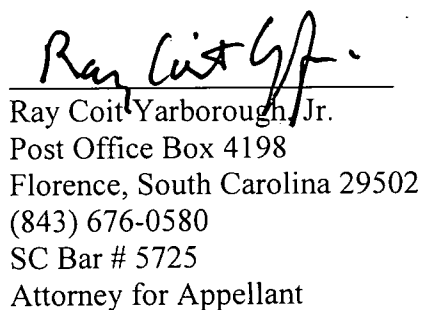 Ray Coit Yarborough, Jr.
Post Office Box 4198
Florence, South Carolina 29502
(843) 676-0580
SC Bar # 5725
Attorney for Appellant